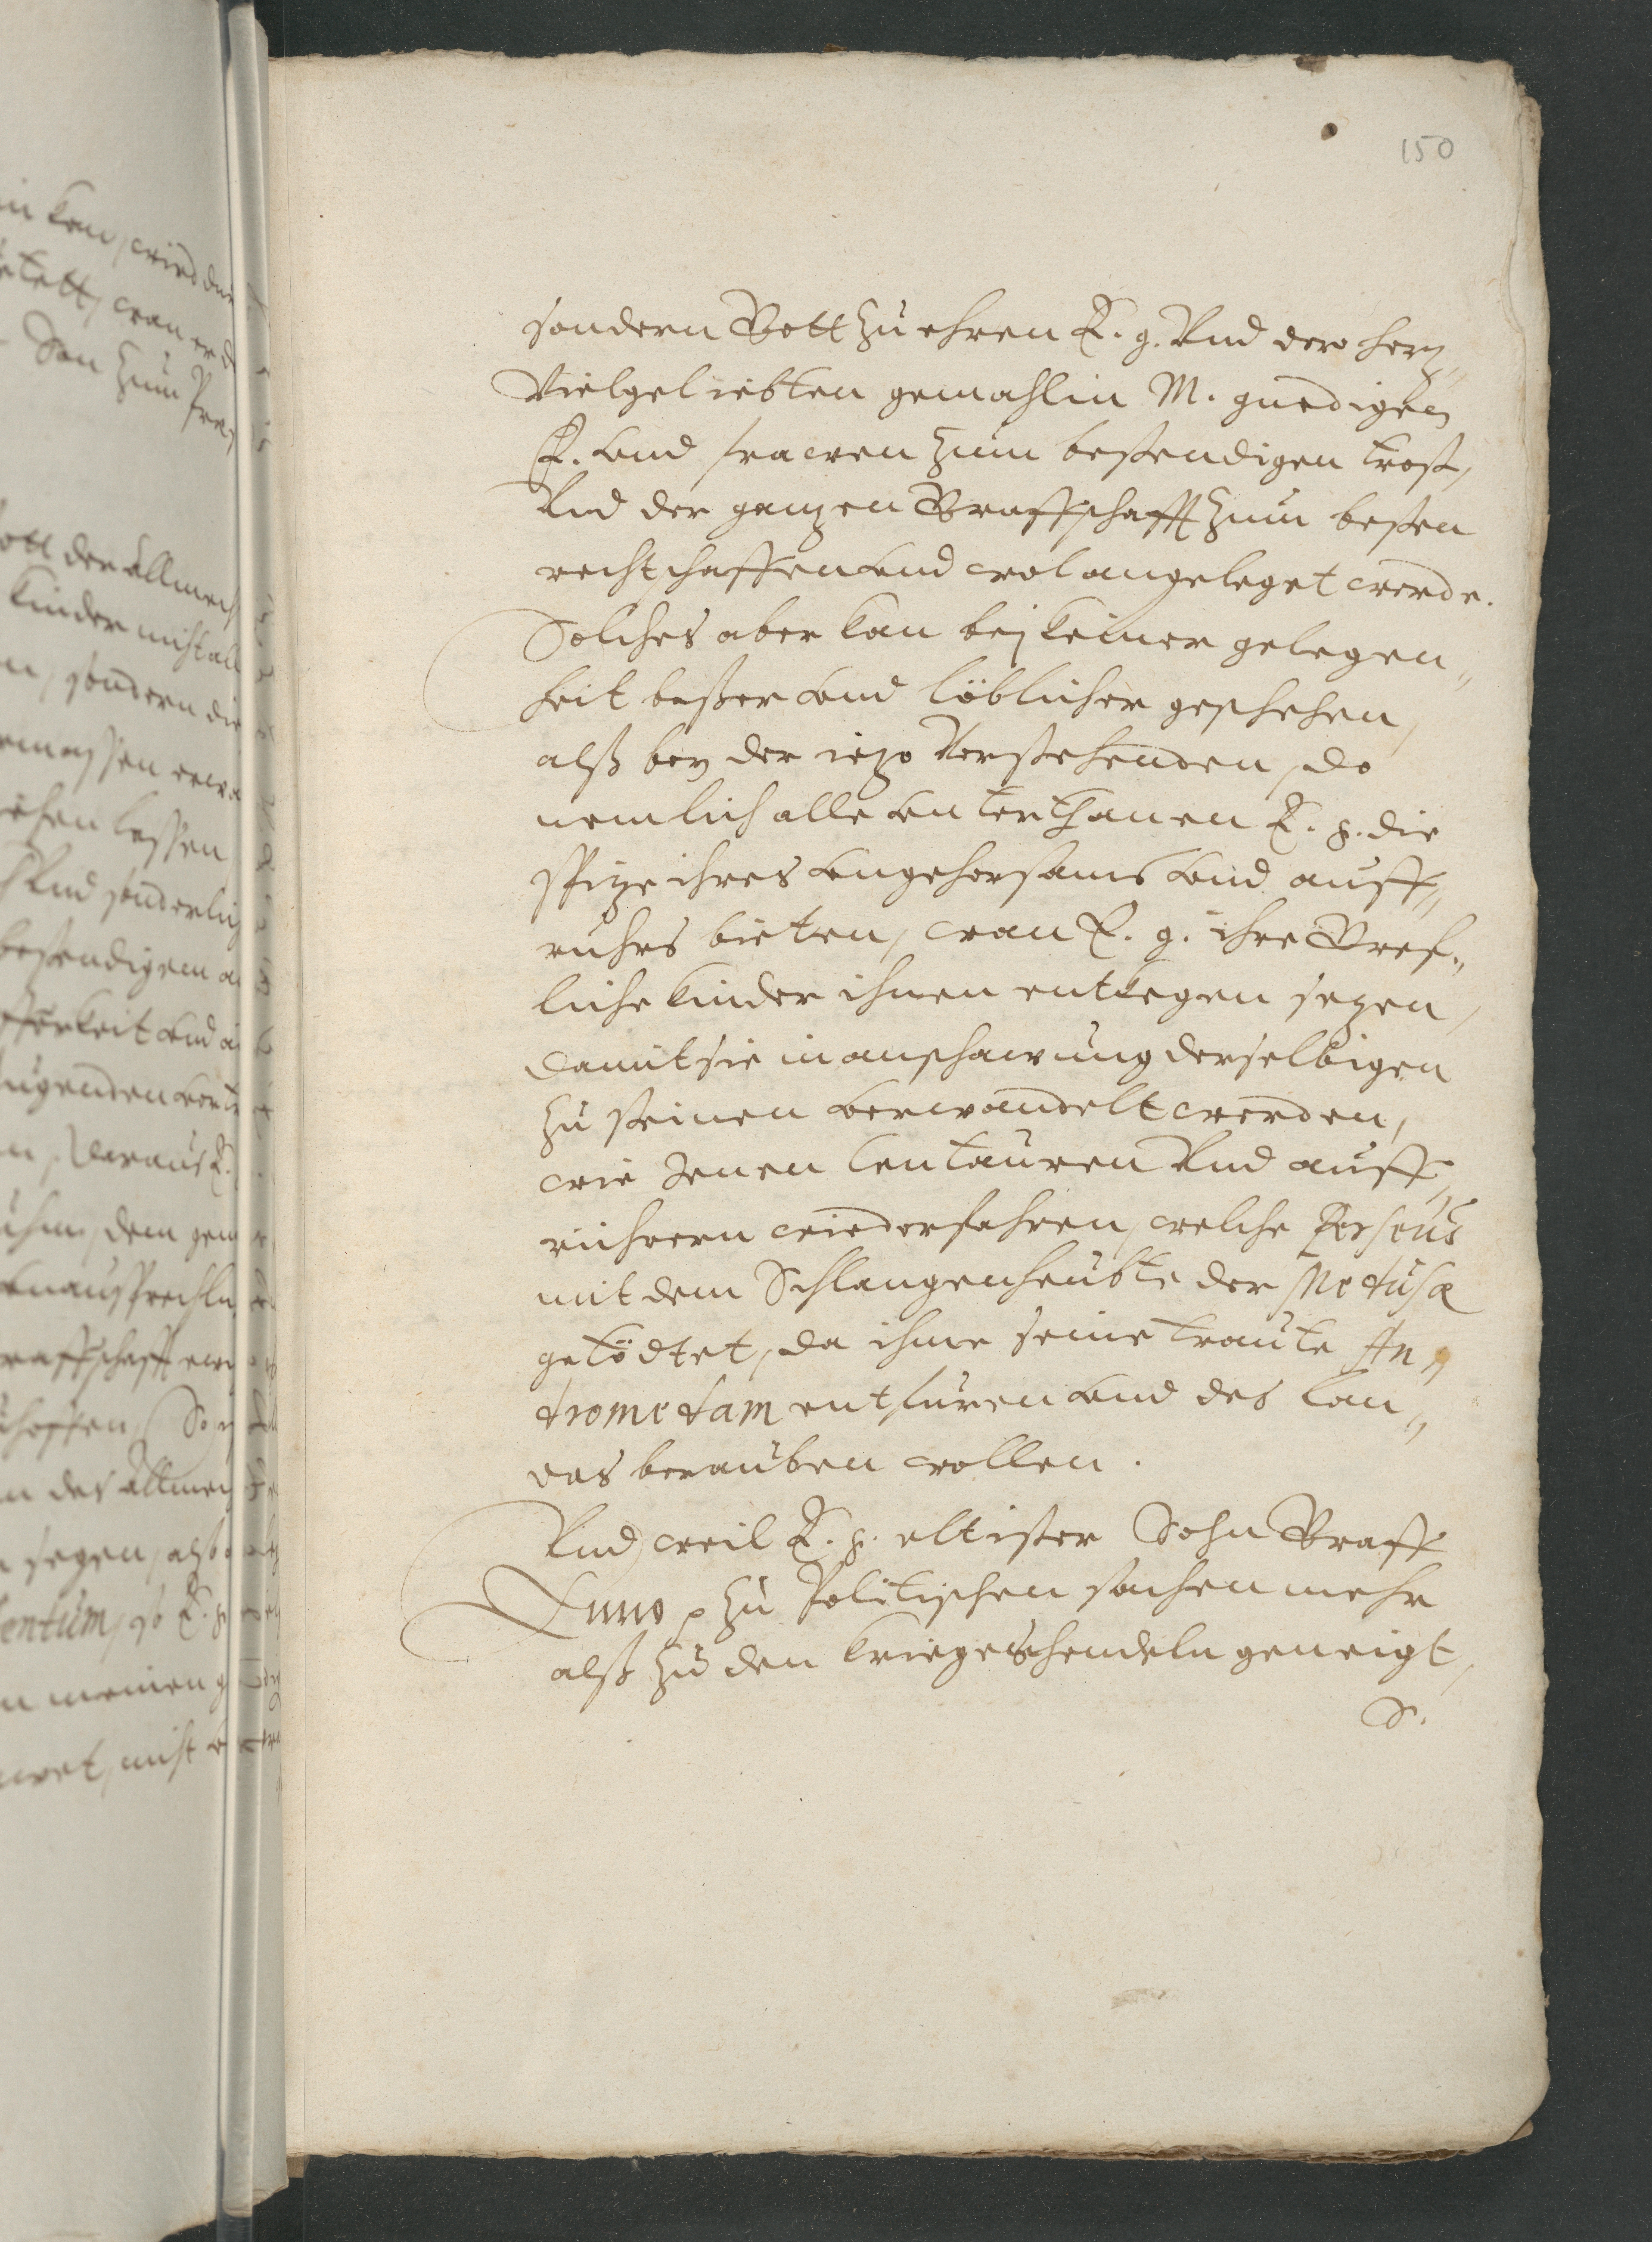 150
sondern Gott zu ehren E. g. Vnd dero herz„
Vielgeliebten gemahlin M. gnedigen
F. vnd frawen zum bestendigen trost,
Vnd der ganzen Graffschafft zum besten
rechtschaffen vnd wol angeleget werde.
Solches aber kan bej keiner gelegen„
heit besser vnd löblicher geschehen,
alß bey der iezo Vorstehenden, do
nemlich alle vnterthanen E. g. die
spize ihres vngehorsams vnd auff„
ruhrs bieten, wan E. g. ihre Gref„
liche kinder ihnen entkegen sezen,
damit sie in anschawung derselbigen
zu steinen verwandelt werden,
wie Jenen Centauren Vnd auff„
rührern wiederfahren, welche Perseus
mit dem Schlangenheubte der Medusæ
getödtet, da ihme seine traute An„
dromedam entfuren vnd des lan„
des berauben wollen.
Vnd weil E. g. eltister Sohn Graff
Enno p zu Politischen sachen mehr
alß zu den krieges hendeln geneigt,
S.